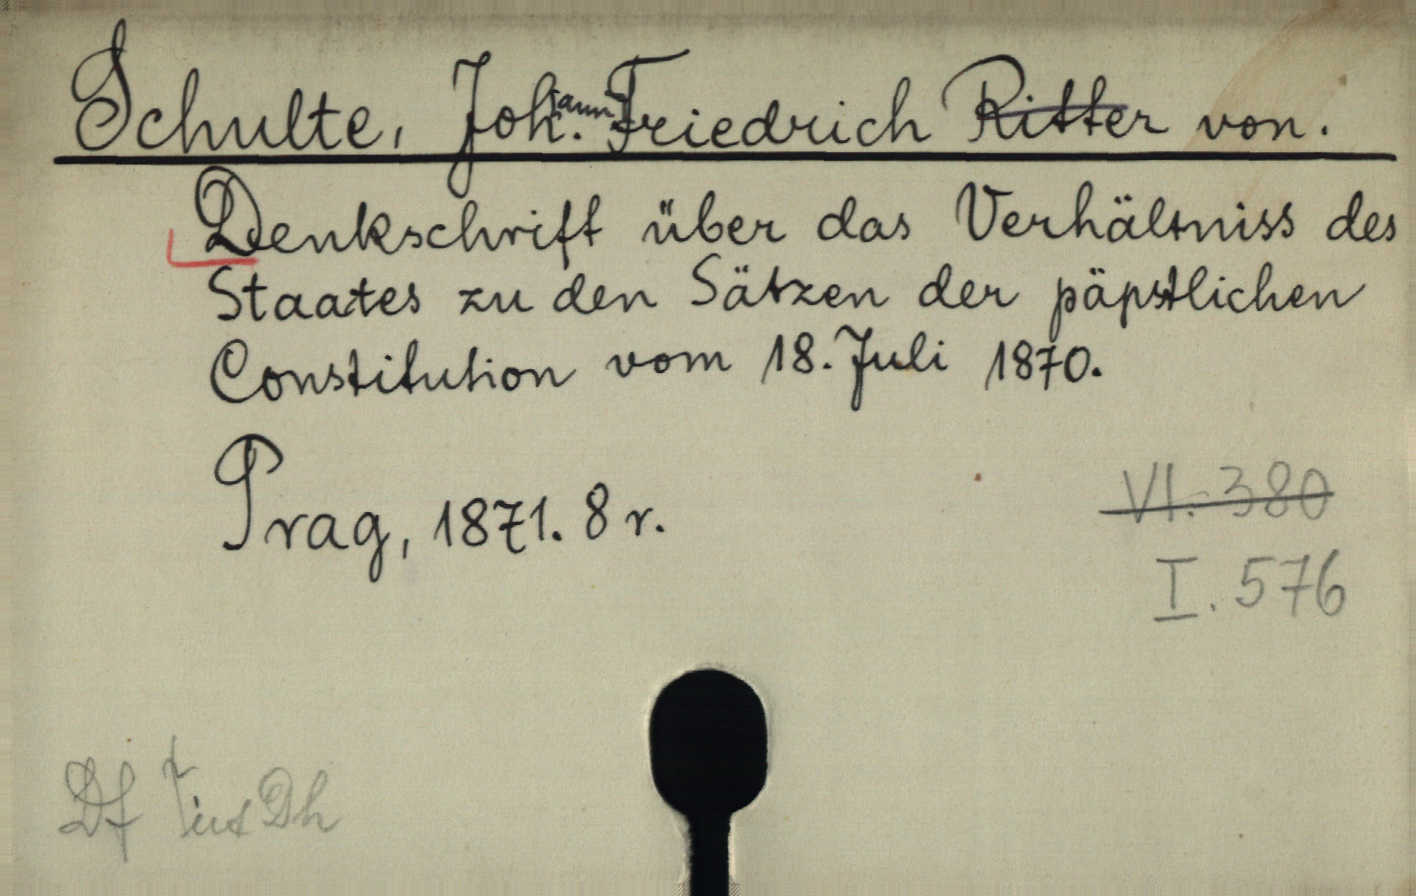 Schulte, Johann. Friedrich Ritter von.
Denkschrift über das Verhältniss des
Staates zu den Sätzen der päpstlichen
Constitution vom 18. Juli 1870.
Prag, 1871. 8 r.
VI. 380
I. 576